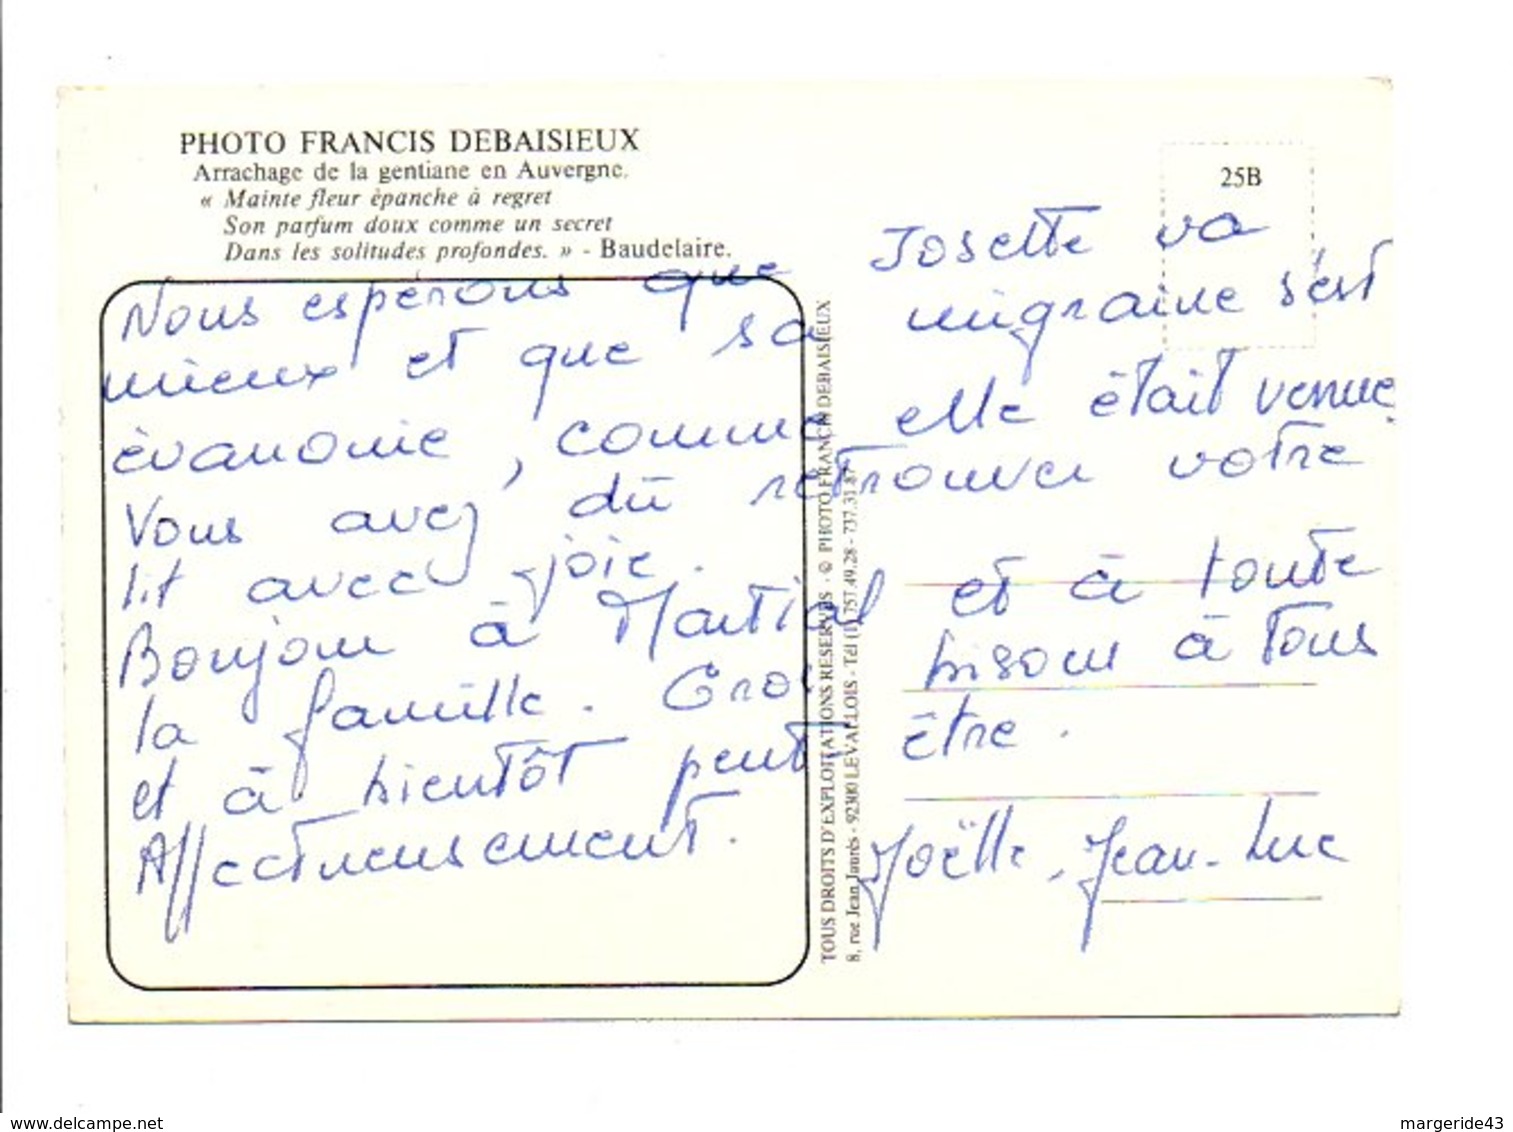 PHOTO FRANCIS DEBAISIEUX
Arrachage de la gentiane en Auvergne.
« Mainte fleur épanche à regret
Son parfum doux comme un secret
Dans les solitudes profondes. » - Baudelaire.
25B
Nous espérons que Josette va
mieux et que sa migraine s'est
évanouie, comme elle était venue.
Vous avez dû retrouver votre
lit avec joie.
Bonjour à Martial et à toute
la famille. Gros bisous à tous
et à bientôt peut être.
Affectueusement.
Joëlle, Jean-Luc
TOUS DROITS D'EXPLOITATIONS RESERVES - © PHOTO FRANCIS DEBAISIEUX
8, rue Jean Jaurès - 92300 LEVALLOIS - Tél (1) 757.49.28 - 737.31.87
www.delcampe.net
margeride43